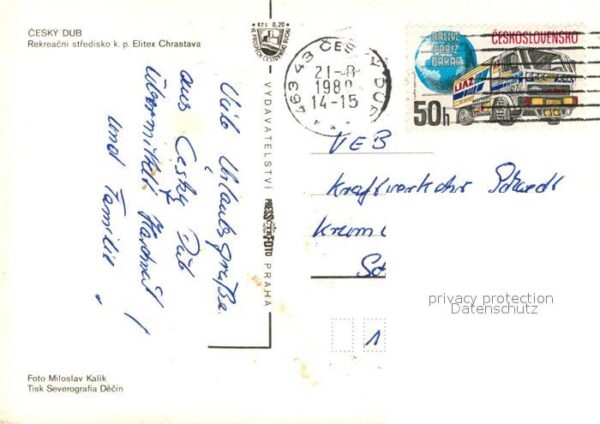 ČESKÝ DUB
Rekreační středisko k. p. Elitex Chrastava
Viele Urlaubsgrüße
aus Český Dub
übermittelt
und Familie.
Foto Miloslav Kalík
Tisk Severografia Děčín
Kčs 0,20
VYDAVATELSTVÍ PRESSFOTO PRAHA
463 43 ČESKÝ DUB
21-8
198
14-15
RALLYE
PAŘÍŽ
DAKAR
ČESKOSLOVENSKO
LIAZ
50h
VEB
Kraftverkehr
privacy protection
Datenschutz
1